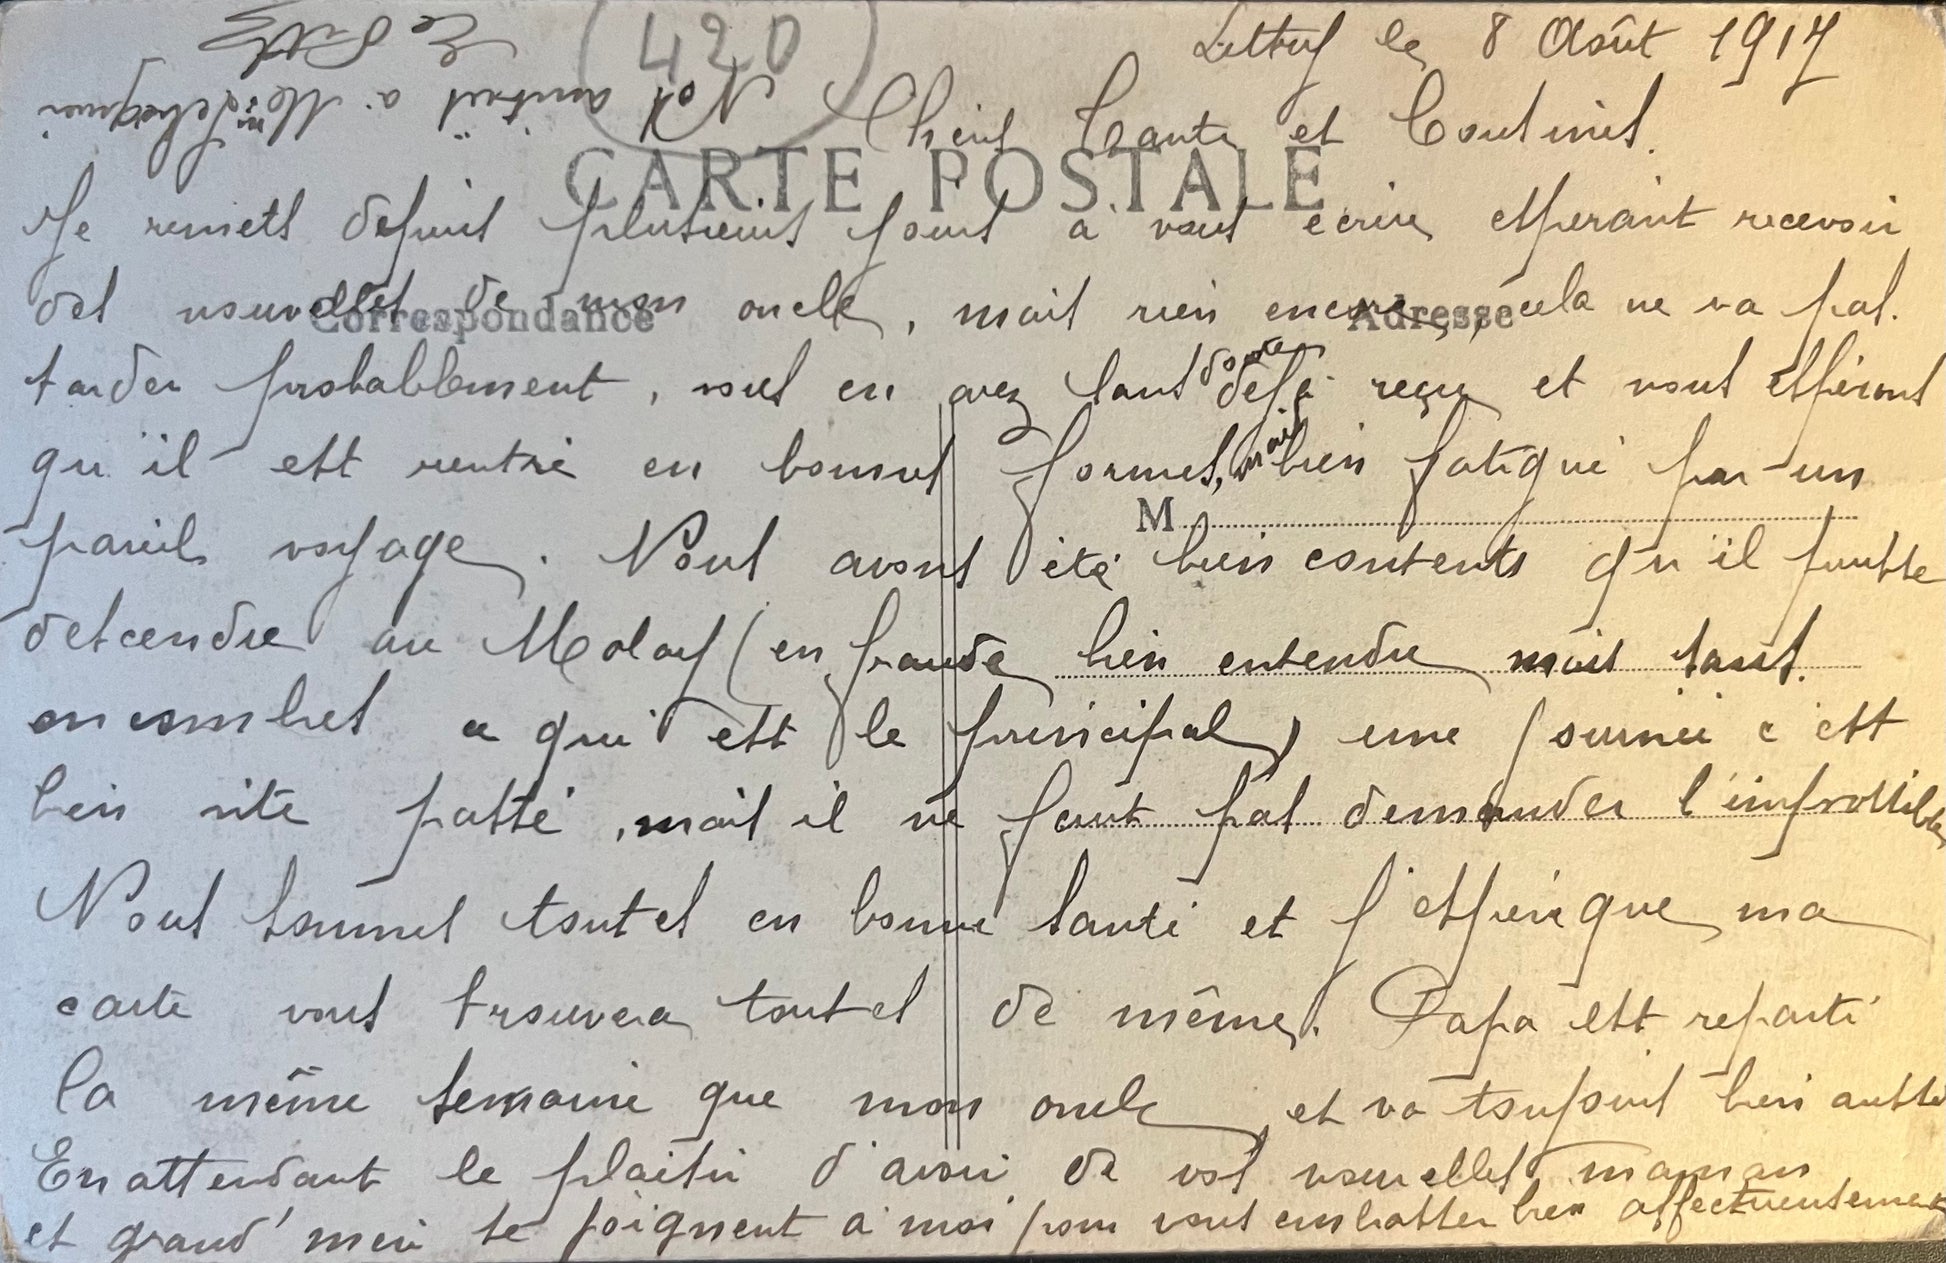 420
le 8 Août 1917
Chers Tante et Cousines.
CARTE POSTALE
Je remets depuis plusieurs jours à vous écrire, espérant recevoir
des nouvelles de mon oncle, mais rien encore, cela ne va pas.
Correspondance
Adresse
tarder probablement, vous en avez sans doute déjà reçu et nous espérons
qu'il est rentré en bonnes formes, mais bien fatigué par un
M
pareil voyage. Nous avons été bien contents qu'il puisse
descendre au Molay (en fraude bien entendu mais sans
encombres ce qui est le principal) une journée c'est
bien vite passé, mais il ne faut pas demander l'impossible
Nous sommes toutes en bonne santé et j'espère que ma
carte vous trouvera toutes de même. Papa est reparti
la même semaine que mon oncle, et va toujours bien aussi
En attendant le plaisir d'avoir de vos nouvelles, maman
et grand'mère se joignent à moi pour vous embrasser bien affectueusement